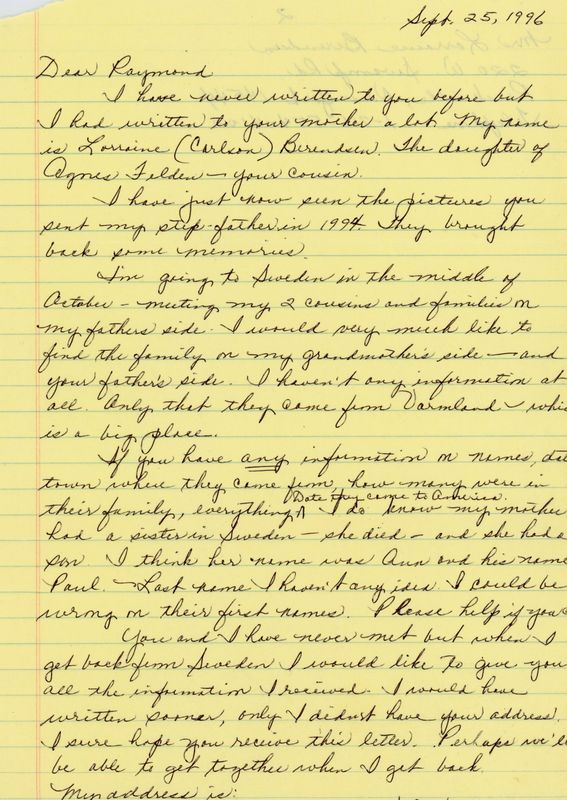 Sept. 25, 1996
Dear Raymond
I have never written to you before but
I had written to your mother a lot. My name
is Lorraine (Carlson) Berendsen. The daughter of
Agnes Felden – your cousin.
I have just now seen the pictures you
sent my step-father in 1994. They brought
back some memories.
I'm going to Sweden in the middle of
October – meeting my 2 cousins and families on
my fathers side. I would very much like to
find the family on my grandmother's side – and
your father's side. I haven't any information at
all. Only that they came from Varmland – whic
is a big place.
If you have any information on names, dat
town where they came from, how many were in
Date they came to America.
their family, everything. I do know my mother
had a sister in Sweden – she died – and she had a
son. I think her name was Ann and his name
Paul. – Last name I haven't any idea. I could be
wrong on their first names. Please help if you c
You and I have never met but when I
get back from Sweden I would like to give you
all the information I received. I would have
written sooner, only I didn't have your address.
I sure hope you receive this letter. Perhaps we'll
be able to get together when I get back.
My address is: